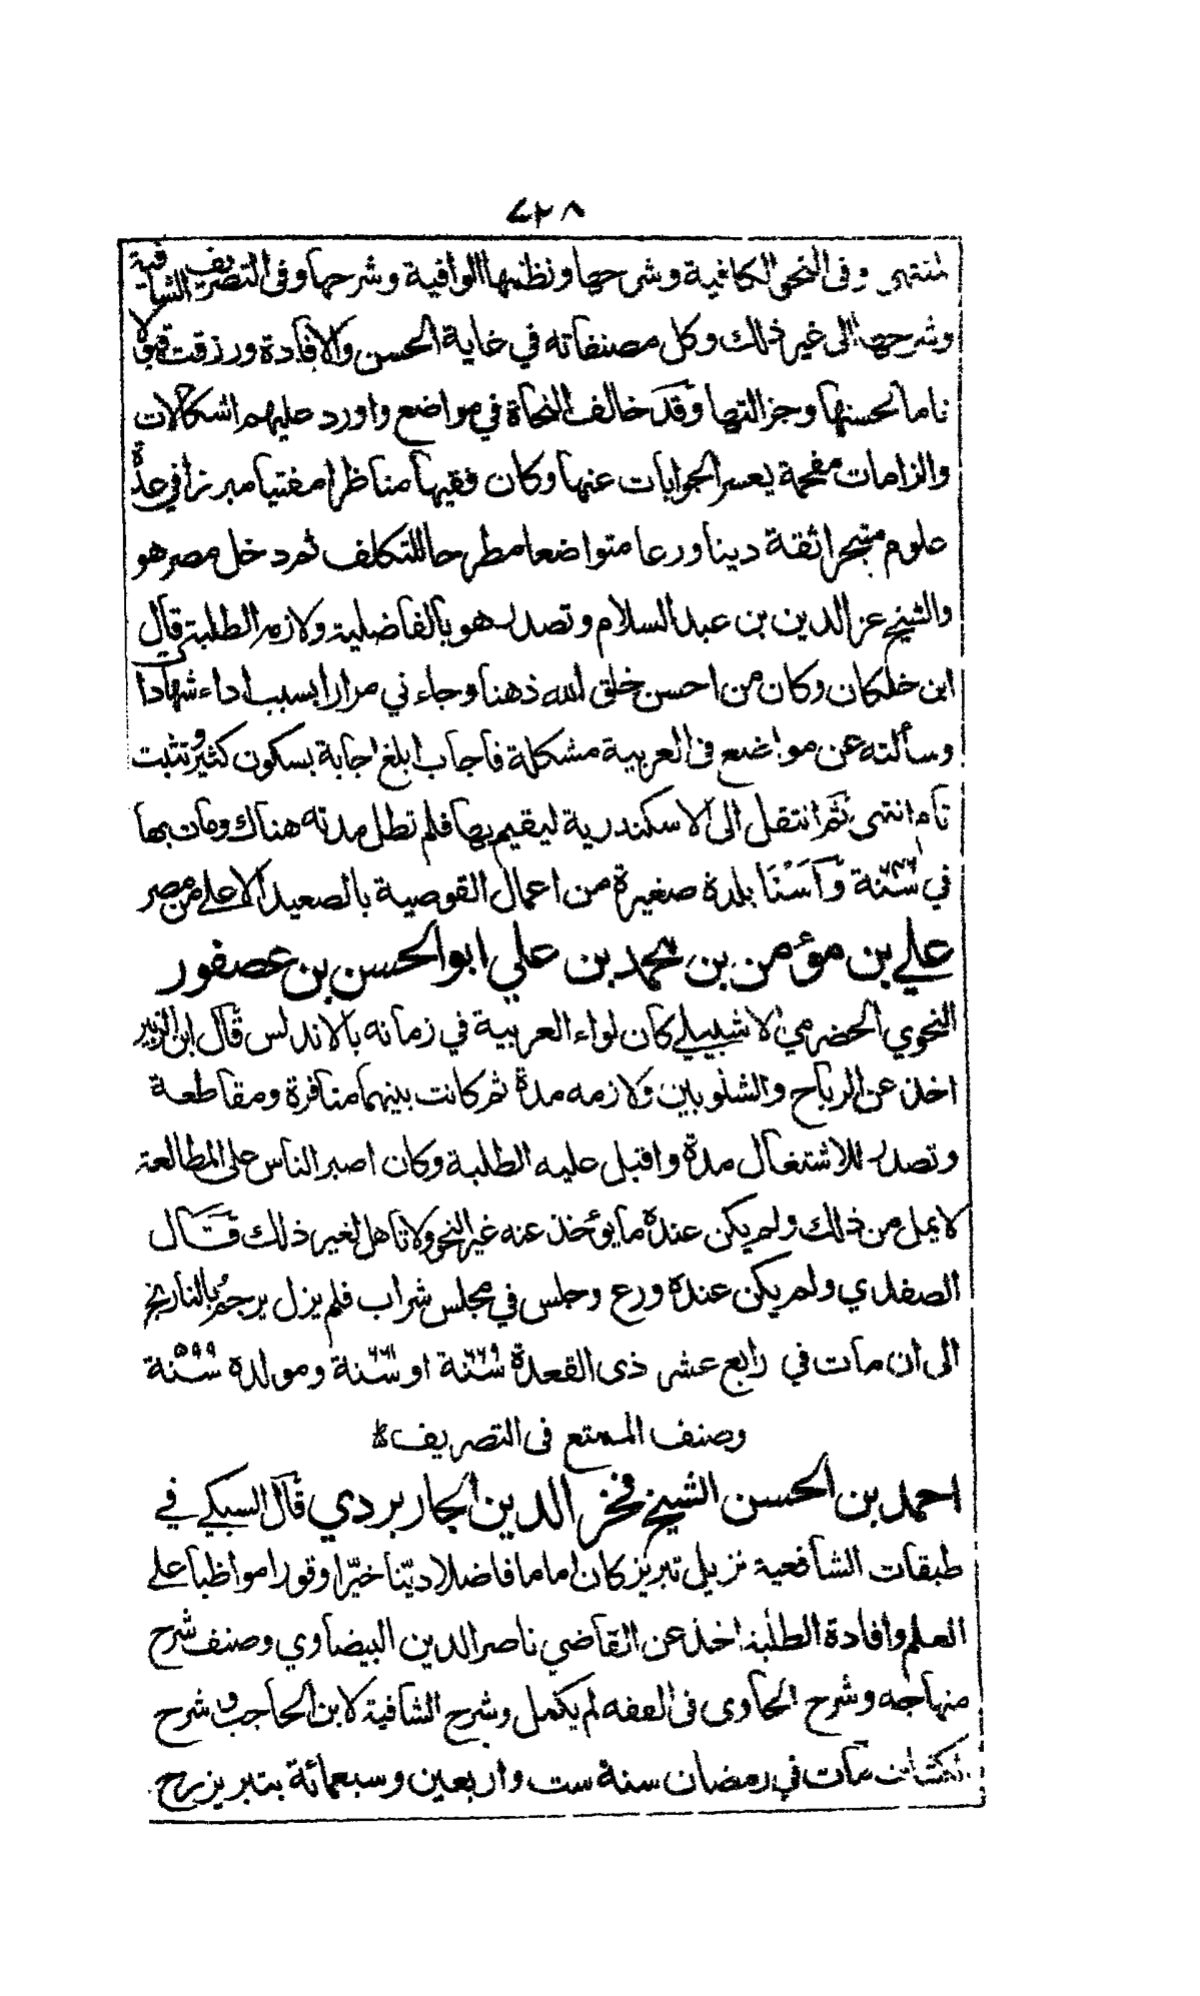 ٧٢٨
المنتهى وفى النحو الكافية وشرحها ونظمها الوافية وشرحها وفى التصريف الشافية
وشرحها الى غير ذلك وكل مصنفاته في غاية الحسن والافادة ورزقت قبولا
تاما لحسنها وجزالتها وقد خالف النحاة في مواضع واورد عليهم اشكالات
والزامات مفحمة يعسر الجوابات عنها وكان فقيها مناظرا مفتيا مبرزا في عدة
علوم متبحرا ثقة دينا ورعا متواضعا مطرحا للتكلف ثم دخل مصر هو
والشيخ عز الدين بن عبد السلام وتصدر هو بالفاضلية ولازمه الطلبة قال
ابن خلكان وكان من احسن خلق الله ذهنا وجاءني مرارا بسبب اداء شهادات
وسألته عن مواضع فى العربية مشكلة فاجاب ابلغ اجابة بسكون كثير وتثبت
تام انتهى ثم انتقل الى الاسكندرية ليقيم بها فلم تطل مدته هناك ومات بها
في سنة ٦٤٦ وآسنا بلدة صغيرة من اعمال القوصية بالصعيد الاعلى من مصر
علي بن مؤمن بن محمد بن علي ابو الحسن بن عصفور
النحوي الحضرمي الاشبيلي كان لواء العربية في زمانه بالاندلس قال ابن الزبير
اخذ عن الرباح والشلوبين ولازمه مدة ثم كانت بينهما منافرة ومقاطعة
وتصدر للاشتغال مدة واقبل عليه الطلبة وكان اصبر الناس على المطالعة
لا يمل من ذلك ولم يكن عنده ما يؤخذ عنه غير النحو ولا تاهل لغير ذلك قال
الصفدي ولم يكن عنده ورع وجلس في مجلس شراب فلم يزل يرجم بالنارنج
الى ان مات في رابع عشر ذى القعدة سنة ٦٦٩ او سنة ٦٦١ ومولده سنة ٥٩٩
وصنف الممتع فى التصريف
احمد بن الحسن الشيخ فخر الدين الجاربردي قال السبكي في
طبقات الشافعية نزيل تبريز كان اماما فاضلا ديّنا خيّرا وقورا مواظبا على
العلم وافادة الطلبة اخذ عن القاضي ناصر الدين البيضاوي وصنف شرح
منهاجه وشرح الحاوى فى الفقه لم يكمل وشرح الشافية لابن الحاجب وشرح
الكشاف مات في رمضان سنة ست واربعين وسبعمائة بتبريز رح